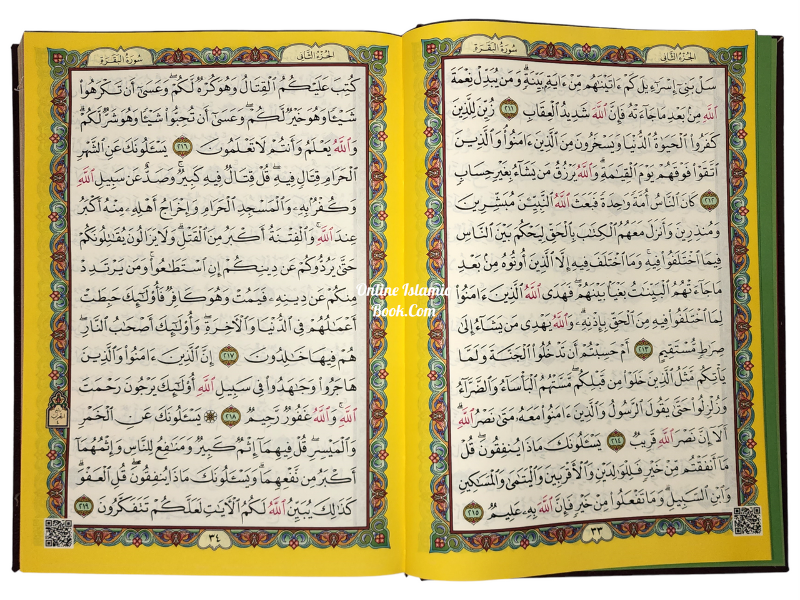 الجزء الثاني
سورة البقرة
سَلْ بَنِىٓ إِسْرَٰٓءِيلَ كَمْ ءَاتَيْنَٰهُم مِّنْ ءَايَةٍۭ بَيِّنَةٍ ۗ وَمَن يُبَدِّلْ نِعْمَةَ
ٱللَّهِ مِنۢ بَعْدِ مَا جَآءَتْهُ فَإِنَّ ٱللَّهَ شَدِيدُ ٱلْعِقَابِ ٢١١ زُيِّنَ لِلَّذِينَ
كَفَرُوا۟ ٱلْحَيَوٰةُ ٱلدُّنْيَا وَيَسْخَرُونَ مِنَ ٱلَّذِينَ ءَامَنُوا۟ ۘ وَٱلَّذِينَ
ٱتَّقَوْا۟ فَوْقَهُمْ يَوْمَ ٱلْقِيَٰمَةِ ۗ وَٱللَّهُ يَرْزُقُ مَن يَشَآءُ بِغَيْرِ حِسَابٍ
٢١٢ كَانَ ٱلنَّاسُ أُمَّةً وَٰحِدَةً فَبَعَثَ ٱللَّهُ ٱلنَّبِيِّـۧنَ مُبَشِّرِينَ
وَمُنذِرِينَ وَأَنزَلَ مَعَهُمُ ٱلْكِتَٰبَ بِٱلْحَقِّ لِيَحْكُمَ بَيْنَ ٱلنَّاسِ
فِيمَا ٱخْتَلَفُوا۟ فِيهِ ۚ وَمَا ٱخْتَلَفَ فِيهِ إِلَّا ٱلَّذِينَ أُوتُوهُ مِنۢ بَعْدِ
مَا جَآءَتْهُمُ ٱلْبَيِّنَٰتُ بَغْيًۢا بَيْنَهُمْ ۖ فَهَدَى ٱللَّهُ ٱلَّذِينَ ءَامَنُوا۟
لِمَا ٱخْتَلَفُوا۟ فِيهِ مِنَ ٱلْحَقِّ بِإِذْنِهِۦ ۗ وَٱللَّهُ يَهْدِى مَن يَشَآءُ إِلَىٰ
صِرَٰطٍ مُّسْتَقِيمٍ ٢١٣ أَمْ حَسِبْتُمْ أَن تَدْخُلُوا۟ ٱلْجَنَّةَ وَلَمَّا
يَأْتِكُم مَّثَلُ ٱلَّذِينَ خَلَوْا۟ مِن قَبْلِكُم ۖ مَّسَّتْهُمُ ٱلْبَأْسَآءُ وَٱلضَّرَّآءُ
وَزُلْزِلُوا۟ حَتَّىٰ يَقُولَ ٱلرَّسُولُ وَٱلَّذِينَ ءَامَنُوا۟ مَعَهُۥ مَتَىٰ نَصْرُ ٱللَّهِ ۗ
أَلَآ إِنَّ نَصْرَ ٱللَّهِ قَرِيبٌ ٢١٤ يَسْـَٔلُونَكَ مَاذَا يُنفِقُونَ ۖ قُلْ
مَآ أَنفَقْتُم مِّنْ خَيْرٍ فَلِلْوَٰلِدَيْنِ وَٱلْأَقْرَبِينَ وَٱلْيَتَٰمَىٰ وَٱلْمَسَٰكِينِ
وَٱبْنِ ٱلسَّبِيلِ ۗ وَمَا تَفْعَلُوا۟ مِنْ خَيْرٍ فَإِنَّ ٱللَّهَ بِهِۦ عَلِيمٌ ٢١٥
٣٣
الجزء الثاني
سورة البقرة
كُتِبَ عَلَيْكُمُ ٱلْقِتَالُ وَهُوَ كُرْهٌ لَّكُمْ ۖ وَعَسَىٰٓ أَن تَكْرَهُوا۟
شَيْـًٔا وَهُوَ خَيْرٌ لَّكُمْ ۖ وَعَسَىٰٓ أَن تُحِبُّوا۟ شَيْـًٔا وَهُوَ شَرٌّ لَّكُمْ ۗ
وَٱللَّهُ يَعْلَمُ وَأَنتُمْ لَا تَعْلَمُونَ ٢١٦ يَسْـَٔلُونَكَ عَنِ ٱلشَّهْرِ
ٱلْحَرَامِ قِتَالٍ فِيهِ ۖ قُلْ قِتَالٌ فِيهِ كَبِيرٌ ۖ وَصَدٌّ عَن سَبِيلِ ٱللَّهِ
وَكُفْرٌۢ بِهِۦ وَٱلْمَسْجِدِ ٱلْحَرَامِ وَإِخْرَاجُ أَهْلِهِۦ مِنْهُ أَكْبَرُ
عِندَ ٱللَّهِ ۚ وَٱلْفِتْنَةُ أَكْبَرُ مِنَ ٱلْقَتْلِ ۗ وَلَا يَزَالُونَ يُقَٰتِلُونَكُمْ
حَتَّىٰ يَرُدُّوكُمْ عَن دِينِكُمْ إِنِ ٱسْتَطَٰعُوا۟ ۚ وَمَن يَرْتَدِدْ
مِنكُمْ عَن دِينِهِۦ فَيَمُتْ وَهُوَ كَافِرٌ فَأُو۟لَٰٓئِكَ حَبِطَتْ
أَعْمَٰلُهُمْ فِى ٱلدُّنْيَا وَٱلْـَٔاخِرَةِ ۖ وَأُو۟لَٰٓئِكَ أَصْحَٰبُ ٱلنَّارِ ۖ
هُمْ فِيهَا خَٰلِدُونَ ٢١٧ إِنَّ ٱلَّذِينَ ءَامَنُوا۟ وَٱلَّذِينَ
هَاجَرُوا۟ وَجَٰهَدُوا۟ فِى سَبِيلِ ٱللَّهِ أُو۟لَٰٓئِكَ يَرْجُونَ رَحْمَتَ
ٱللَّهِ ۚ وَٱللَّهُ غَفُورٌ رَّحِيمٌ ٢١٨ ۞ يَسْـَٔلُونَكَ عَنِ ٱلْخَمْرِ
وَٱلْمَيْسِرِ ۖ قُلْ فِيهِمَآ إِثْمٌ كَبِيرٌ وَمَنَٰفِعُ لِلنَّاسِ وَإِثْمُهُمَآ
أَكْبَرُ مِن نَّفْعِهِمَا ۗ وَيَسْـَٔلُونَكَ مَاذَا يُنفِقُونَ قُلِ ٱلْعَفْوَ ۗ
كَذَٰلِكَ يُبَيِّنُ ٱللَّهُ لَكُمُ ٱلْـَٔايَٰتِ لَعَلَّكُمْ تَتَفَكَّرُونَ ٢١٩
٣٤
Online Islamic
Book.Com